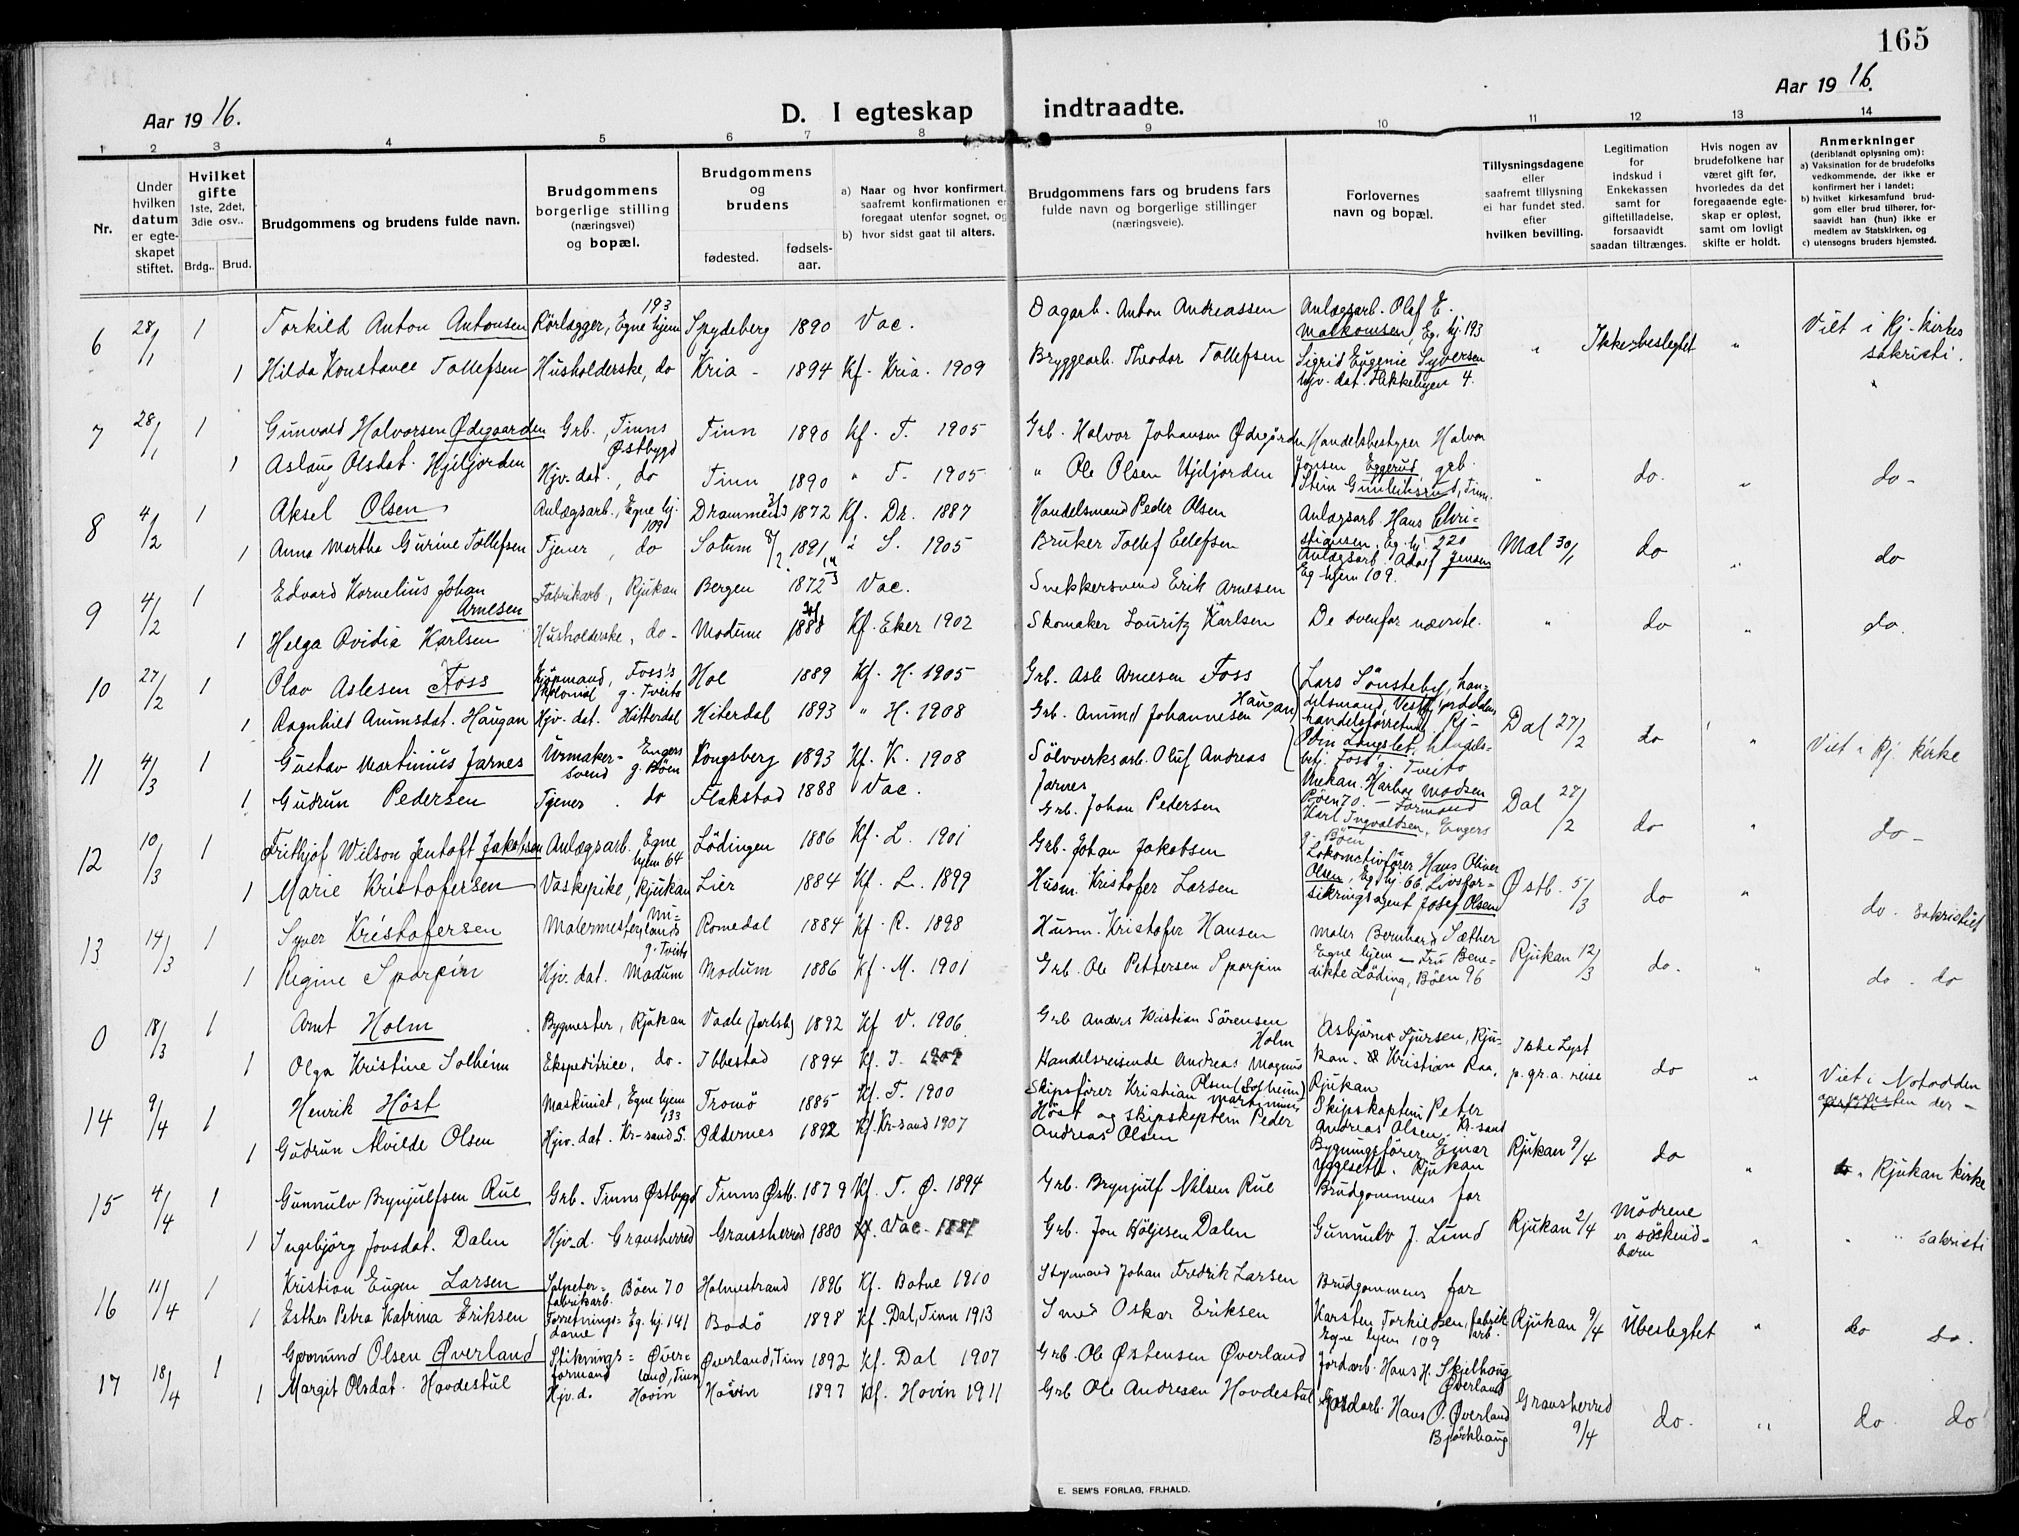 165
Aar 1916.
D. I egteskap indtraadte.
Aar 1916.
1 2 3 4 5 6 7 8 9 10 11 12 13 14
Nr.
Under hvilken datum er egteskapet stiftet.
Hvilket gifte 1ste, 2det, 3die osv..
Brdg.. Brud.
Brudgommens og brudens fulde navn.
Brudgommens borgerlige stilling (næringsvei) og bopæl.
Brudgommens og brudens
fødested. fødselsaar.
a) Naar og hvor konfirmert, saafremt konfirmationen er foregaat utenfor sognet, og
b) hvor sidst gaat til alters.
Brudgommens fars og brudens fars fulde navn og borgerlige stillinger (næringsveie).
Forlovernes navn og bopæl.
Tillysningsdagene eller saafremt tillysning ei har fundet sted, efter hvilken bevilling.
Legitimation for indskud i Enkekassen samt for giftetilladelse, forsaavidt saadan tiltrænges.
Hvis nogen av brudefolkene har været gift før, hvorledes da det foregaaende egteskap er opløst, samt om lovligt skifte er holdt.
Anmerkninger (deriblandt oplysning om):
a) Vaksination for de brudefolks vedkommende, der ikke er konfirmert her i landet;
b) hvilket kirkesamfund brudgom eller brud tilhører, forsaavidt han (hun) ikke er medlem av Statskirken, og
c) utensogns bruders hjemsted.
6 28/1 1 Torkild Anton Antonsen Rörlægger, Egne hjem 193 Spydeberg 1890 Vac. Dagarb. Anton Andreassen Anlægsarb. Olaf E. Malkomsen, Eg. hj. 193 " Ikke beslegtet " Viet i Rj-kirkes sakristi.
1 Hilda Konstance Tollefsen Husholderske, do Kria - 1894 Kf. Kria. 1909 Bryggearb. Theodor Tollefsen Sigrid Eugenie Syversen hjv. dat. Flekkebyen 4. "
7 28/1 1 Gunvald Halvorsen Ødegaarden Grb., Tinns Østbygd Tinn 1890 Kf. T. 1905 Grb. Halvor Johansen Ødegården Handelsbestyrer Halvor Jonsen Eggerud, grb.
1 Aslaug Olsdat. Hjiljorden Hjv. dat., do Tinn 1890 " T. 1905 " Ole Olsen Hjiljorden Stein Gunleiksrud, Tinn. " do. " do-
8 4/2 1 Aksel Olsen Anlægsarb., Egne hj. 109 Drammen 3/3 1872 Kf. Dr. 1887 Handelsmand Peder Olsen Anlægsarb. Hans Christiansen, Eg. hj. 220
1 Anna Martha Gurine Tollefsen Tjener, do Solum 8/2 1891 " S. 1905 Bruker Tollef Ellefsen Anlægsarb. Adolf Jensen Eg. hjem 109. Mæl 30/1 do " do
9 4/2 1 Edvard Kornelius Johan Arnesen Fabrikarb, Rjukan Bergen 1872 Vac. Snekkersvend Erik Arnesen
1 Helga Ovidia Karlsen Husholderske, do- Modum 1888 Kf. Eker 1902 Skomaker Lauritz Karlsen De ovenfor nævnte. " do " do.
10 27/2 1 Olav Aslesen Foss Kjøpmand, Foss's kolonial g. Tveito Hol 1889 Kf. H. 1905 Grb. Asle Arnesen Foss Lars Sönsteby, handelsmand, Vestfjorddalens handelsforretning, Rj-
1 Ragnhild Anunsdat. Haugan Hjv. dat. Hitterdal Hiterdal 1893 " H. 1908 Grb. Anund Johannesen Haugan Odin Langslet, handelsbetj. Foss g. Tveito Dal 27/2 do " Viet i Rj. kirke
11 4/3 1 Gustav Martinius Jarnes Urmakersvend Engers g. Böen Kongsberg 1893 Kf. K. 1908 Sölvverksarb. Oluf Andreas Jarnes Mekan. Harboe Madsen Böen 70. - Formand
1 Gudrun Pedersen Tjener. do Flakstad 1888 Vac. Grb. Johan Pedersen Karl Ingvaldsen, Engers g. Böen Dal 27/2 do " do-
12 10/3 1 Frithjof Wilson Jentoft Jakobsen Anlægsarb. Egne hjem 64 Lödingen 1886 Kf. L. 1901 Grb. Johan Jakobsen Lokomotivfører Hans Oliver Olsen, Eg. hj. 66. Livsfor-
1 Marie Kristofersen Vaskepike, Rjukan Lier 1884 Kf. L. 1899 Husm. Kristofer Larsen sikringsagent Josef Olsen Østb. 5/3 do " do. Sakristiet
13 14/3 1 Syver Kristofersen Malermester, g. Tveito Romedal 1884 Kf. R. 1898 Husm. Kristofer Hansen Maler Bernhard Sæther Egne hjem - Fru Bene-
1 Regine Sporpin Hjv. dat. Modum Modum 1886 Kf. M. 1901 Grb. Ole Pettersen Sporpin dikte Löding, Böen 96 Rjukan 12/3 do. " do. do
0 18/3 1 Arnt Holm Bygmester, Rjukan Vaale (Jarlsb) 1892 Kf V. 1906 Grb Anders Kristian Sörensen Holm Asbjörn Sjursen, Rjukan. & Kristian Raa, Rjukan
1 Olga Kristine Solheim Ekspeditrice, do. Ibbestad 1894 Kf. I. 1909 Handelsreisende Andreas Magnus Olsen (Solheim) Ikke Lyst p. gr. a. reise do " Viet i Notodden av presten der-
14 9/4 1 Henrik Höst Maskinist, Egne hjem 133 Tromö 1885 Kf. T. 1900 Skipsfører Kristian Martinius Höst og skipskaptein Peder Andreas Olsen Skipskaptein Peter Andreas Olsen, Kr-sand
1 Gudrun Alvilde Olsen Hjv. dat. Kr-sand S. Oddernes 1892 Kf. Kr-sand 1907 Bygningsfører Einar Yggeseth, Rjukan Rjukan 9/4 do " " Rjukan kirke
15 4/4 1 Gunnulv Brynjulfsen Rue Grb. Tinns Østbygd Tinns Østb. 1879 Kf. T. Ø. 1894 Grb. Brynjulf Nilsen Rue Brudgommens far
1 Ingebjörg Jonsdat. Dalen Hjv. d. Gransherred Gransherred 1880 Kf. Vac. 1887 Grb. Jon Höljesen Dalen Gunnulv J. Lund Rjukan 2/4 Mödrene er söskendbarn " " " Sakristi
16 11/4 1 Kristian Eugen Larsen Salpeterfabrikarb. Böen 70 Holmestrand 1896 Kf. Botne 1910 Styrmand Johan Fredrik Larsen Brudgommens far
1 Esther Petra Katrina Eriksen Forretningsdame Eg. hj. 141 Bodö 1898 Kf. Dal, Tinn 1913 Smed Oskar Eriksen Karsten Torkildsen, fabrikarb. Egne hjem 109 Rjukan 9/4 Ubeslegtet " do do.
17 18/4 1 Gjermund Olsen Øverland Stikningsformand Øverland, Tinn Øverland, Tinn 1892 Kf. Dal 1907 Grb. Ole Østensen Øverland Jordarb. Hans H. Skjelhaug Øverland
1 Margit Olsdat. Hovdestul Hjv. d. Hovin Hövin 1897 Kf. Hovin 1911 Grb Ole Andresen Hovdestul Jordarb. Hans O. Øverland Björkhaug Gransherred 9/4 do. " do do
E. SEM'S FORLAG, FR.HALD.